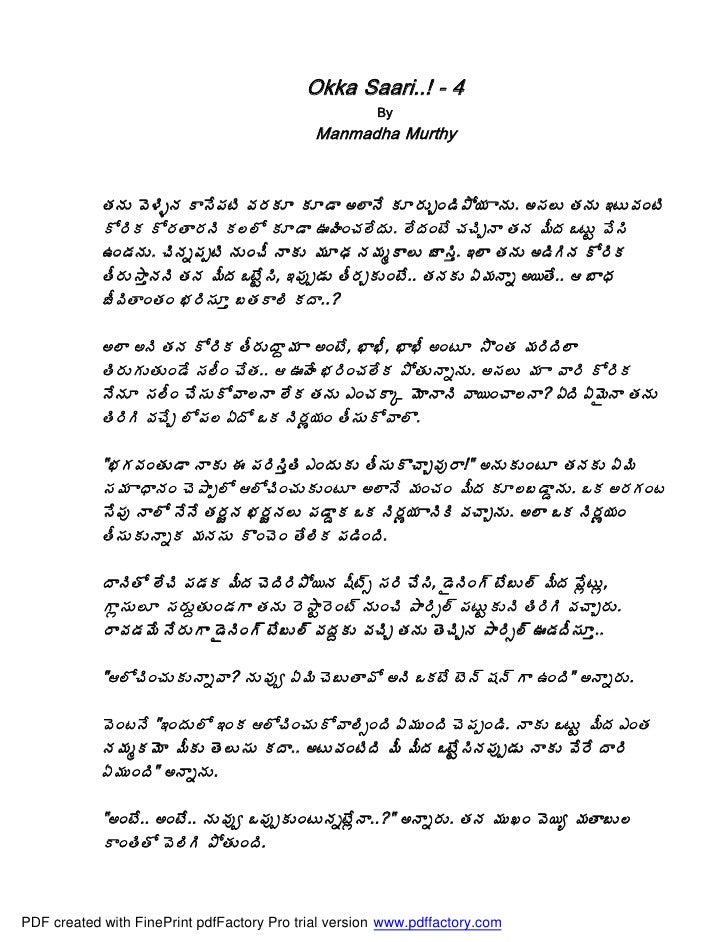 Okka Saari..! - 4
By
Manmadha Murthy
తను వెళ్ళిన కాసేపటి వరకూ కూడా అలానే కూరుర్చుండిపోయాను. అసలు తను ఇటువంటి
కోరిక కోరతారని కలలో కూడా ఊహించలేదు. లేదంటే చచ్చినా తన మీద ఒట్టు వేసి
ఉండను. చిన్నప్పటి నుంచీ నాకు మూఢ నమ్మకాలు జాస్తి. ఇలా తను అడిగిన కోరిక
తీరుస్తానని తన మీద ఒట్టేసి, ఇప్పుడు తీర్చకుంటే.. తనకు ఏమన్నా అయితే.. ఆ బాధ
జీవితాంతం భరిస్తూ బతకాలి కదా..?
అలా అని తన కోరిక తీరుద్దామా అంటే, భాభీ, భాభీ అంటూ సొంత మరిదిలా
తిరుగుతుండే సలీం చేత.. ఆ ఊహే భరించలేక పోతున్నాను. అసలు మా వారి కోరిక
నేనూ సలీం చేసుకోవాలనా లేక తను ఎంచక్కా మోనాని వాయించాలనా? ఏది ఏమైనా తను
తిరిగి వచ్చే లోపల ఏదో ఒక నిర్ణయం తీసుకోవాలి.
"భగవంతుడా నాకు ఈ పరిస్తితి ఎందుకు తీసుకొచ్చావురా!" అనుకుంటూ తనకు ఏమి
సమాధానం చెప్పాలో ఆలోచించుకుంటూ అలానే మంచం మీద కూలబడ్డాను. ఒక అరగంట
సేపు నాలో నేనే తర్జన భర్జనలు పడ్డాక ఒక నిర్ణయానికి వచ్చాను. అలా ఒక నిర్ణయం
తీసుకున్నాక మనసు కొంచెం తేలిక పడింది.
దానితో లేచి పడక మీద చెదిరిపోయిన షీట్స్ సరి చేసి, డైనింగ్ టేబుల్ మీద ప్లేట్లు,
గ్లాసులూ సర్దుతుండగా తను రెస్టారెంట్ నుంచి పార్సిల్ పట్టుకుని తిరిగి వచ్చారు.
రావడమే నేరుగా డైనింగ్ టేబుల్ వద్దకు వచ్చి తను తెచ్చిన పార్సిల్ ఊడదీస్తూ..
"ఆలోచించుకున్నావా? నువ్వు ఏమి చెబుతావో అని ఒకటే టెన్ షన్ గా ఉంది" అన్నారు.
వెంటనే "ఇందులో ఇంక ఆలోచించుకోవాల్సింది ఏముంది చెప్పండి. నాకు ఒట్టు మీద ఎంత
నమ్మకమో మీకు తెలుసు కదా.. అటువంటిది మీ మీద ఒట్టేసినప్పుడు నాకు వేరే దారి
ఏముంది" అన్నాను.
"అంటే.. అంటే.. నువ్వు ఒప్పుకుంటున్నట్లేనా..?" అన్నారు. తన ముఖం వెయ్యి మతాబుల
కాంతితో వెలిగి పోతుంది.
PDF created with FinePrint pdfFactory Pro trial version www.pdffactory.com